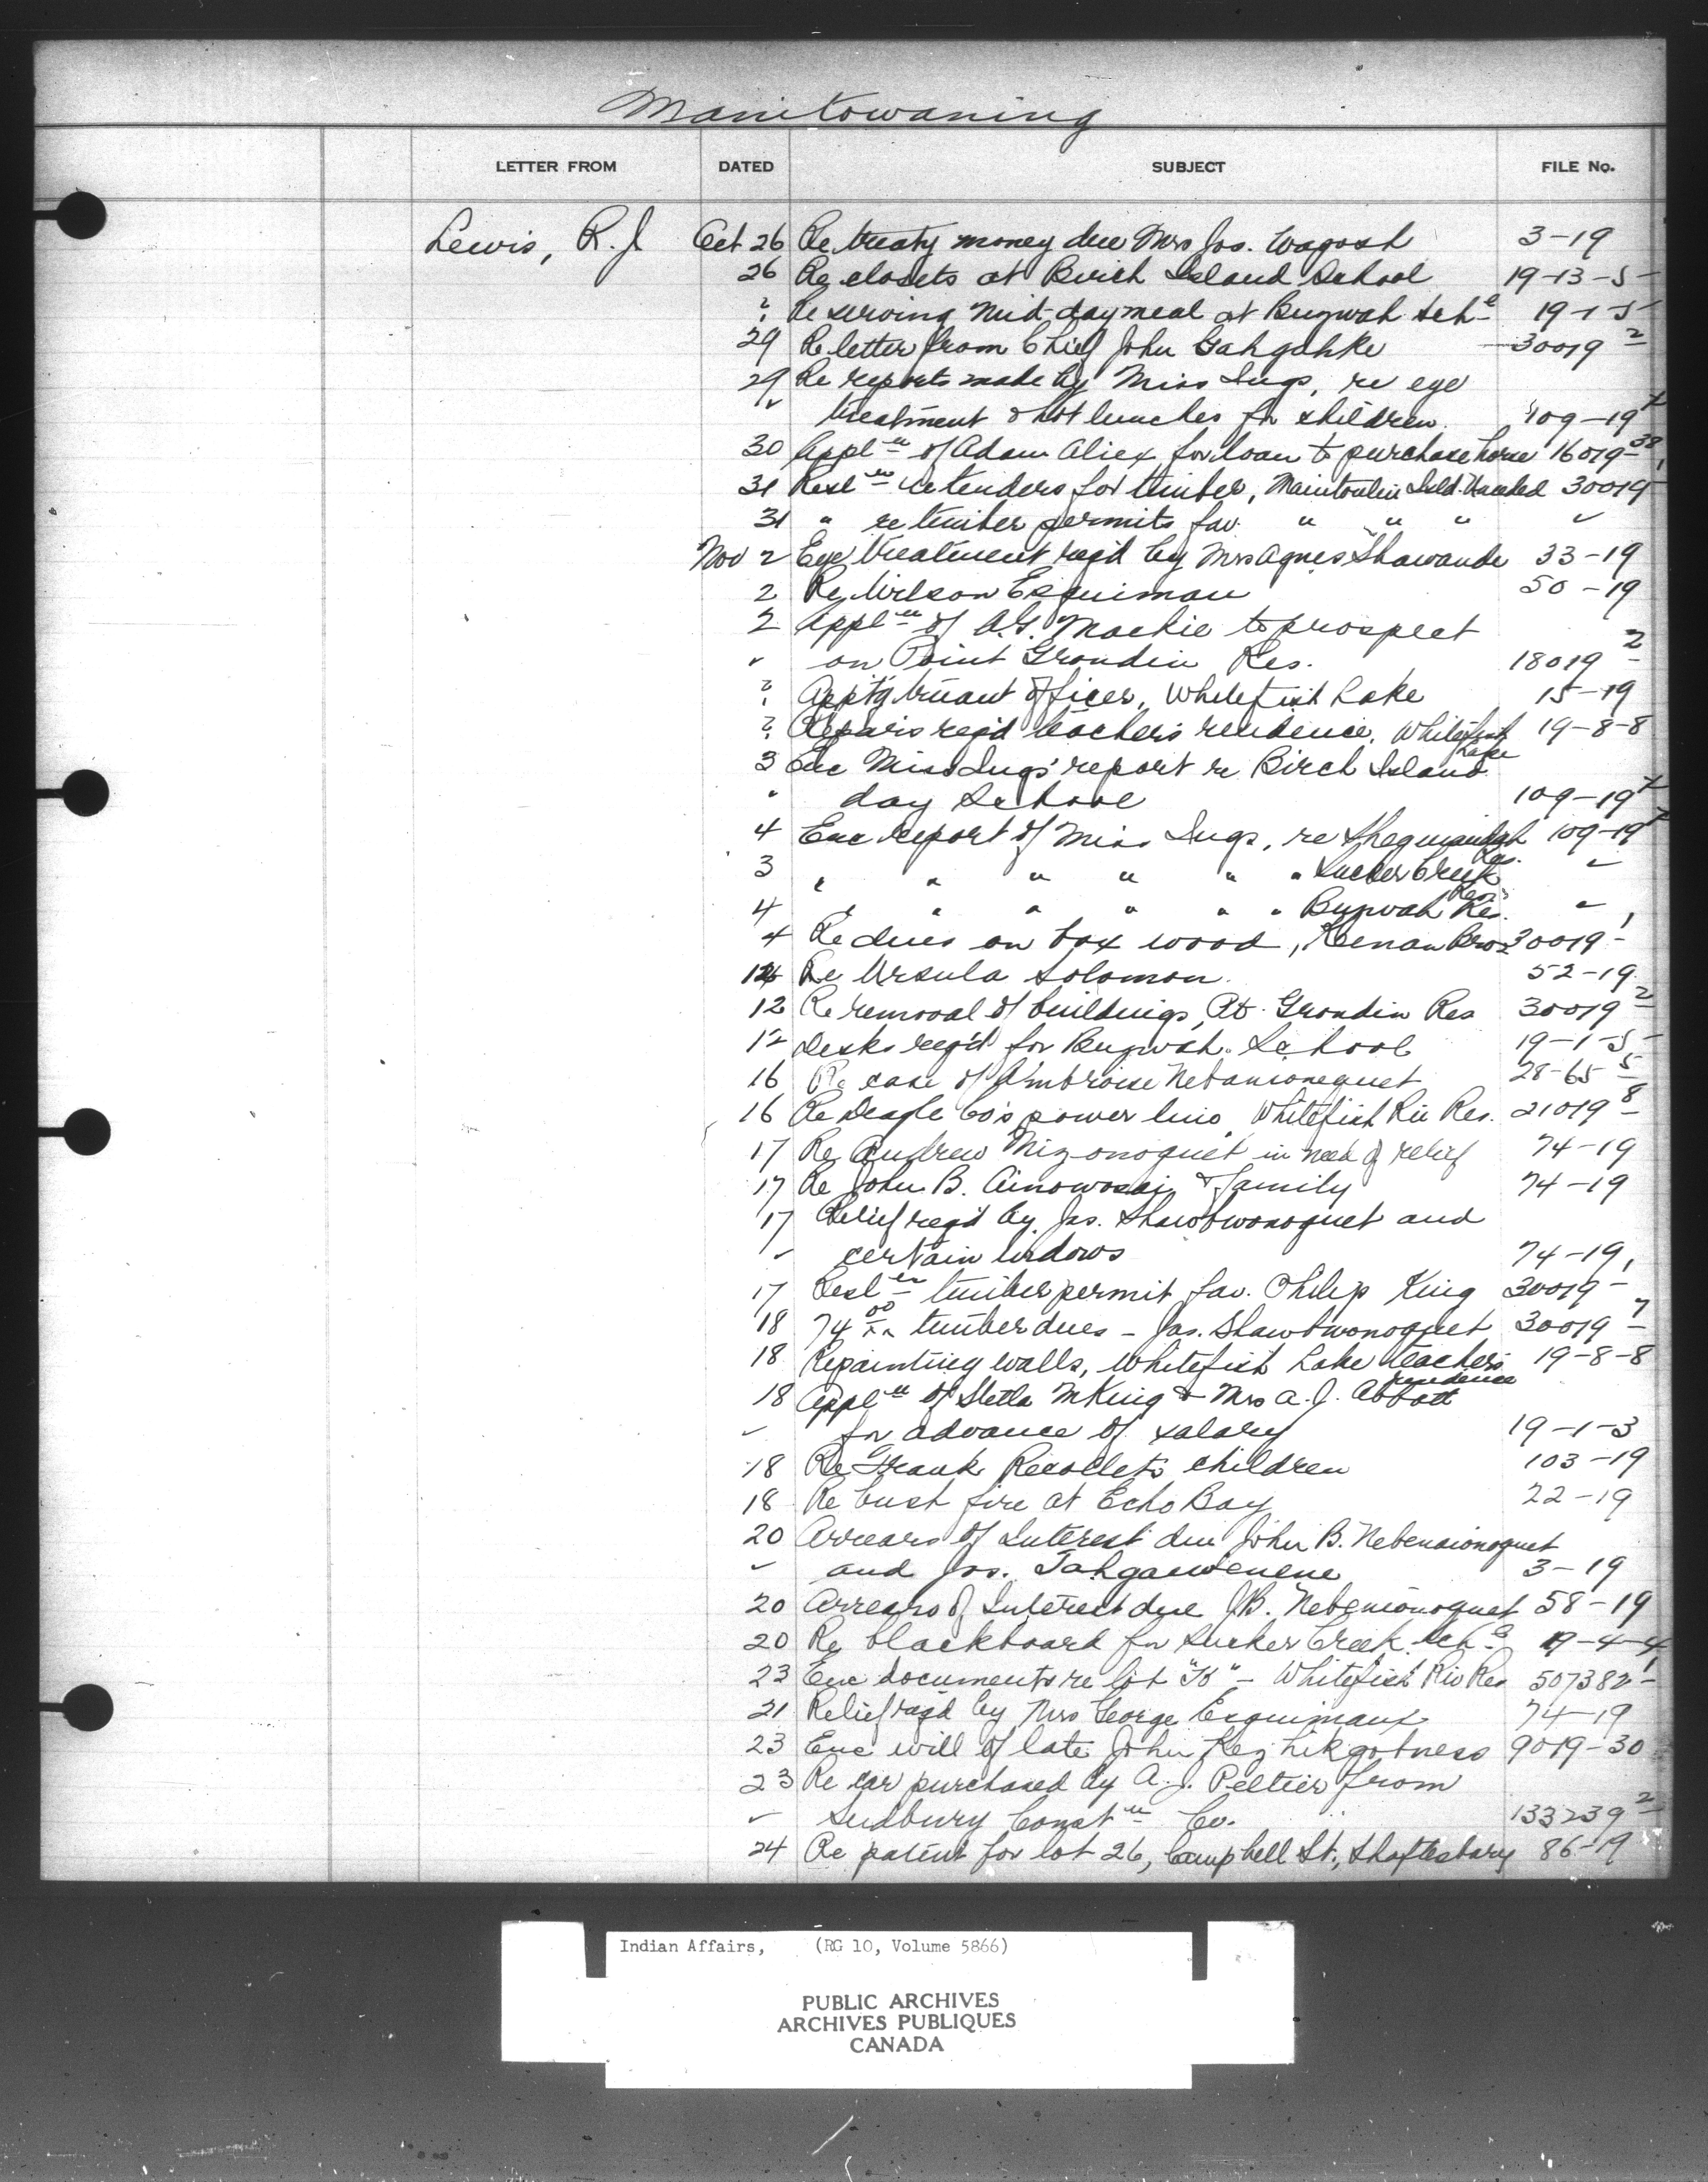 Manitowaning
LETTER FROM DATED SUBJECT FILE No.
Lewis, R.J. Oct 26 Re treaty money due Mrs Jos. Wagosh 3-19
26 Re closets at Birch Island School 19-13-5
? Re serving mid-day meal at Buzwah Sch l 19-1-5
29 Re letter from Chief John Gahgahke 30019-2
29 Re reports made by Miss Ings, re eye
" treatment & hot lunches for children. 109-19
30 Appl n of Adam Aliex for loan to purchase horse 16019-38
31 Resl n re tenders for timber, Manitoulin Isld. Unceded 30019-1
31 " re timber permits fav. " " " "
Nov 2 Eye treatment req'd by Mrs Agnes Shawande 33-19
2 Re Wilson Esquimau 50-19
2 Appl n of A.G. Mackie to prospect
" on Point Grondin Res. 18019-2
? App'tg truant officer, Whitefish Lake 15-19
? Repairs req'd teacher's residence, Whitefish Lake 19-8-8
3 Enc Miss Ings' report re Birch Island
" day School 109-19
4 Enc report of Miss Ings, re Sheguiandah Res. 109-19
3 " " " " " " Sucker Creek Res. "
4 " " " " " " Buzwah Res. "
4 Re dues on box wood, Keenan Bros 30019-1
12 Re Ursula Solomon. 52-19
12 Re removal of buildings, Pt. Grondin Res 30019-2
12 Desks req'd for Buzwah School 19-1-5
16 Re case of Ambroise Nebanionequet 28-65-5
16 Re Deagle Co's power line, Whitefish Riv Res. 21019-8
17 Re Andrew Mizonoquet in need of relief 74-19
17 Re John B. Ainowosai & family 74-19
17 Relief req'd by Jas. Shawbwonoquet and
" certain widows 74-19
17 Resl n timber permit fav. Philip King 30019-1
18 74 00/xx timber dues - Jas. Shawbwonoquet 30019-7
18 Repainting walls, Whitefish Lake teacher's residence 19-8-8
18 Appl n of Stella M King & Mrs A.J. Abbott
" for advance of salary 19-1-3
18 Re Frank Recollets children 103-19
18 Re bush fire at Echo Bay 22-19
20 Arrears of Interest due John B. Nebenaionoquet
" and Jos. Tahgaiwenene 3-19
20 Arrears of Interest due J.B. Nebenionoquet 58-19
20 Re blackboard for Sucker Creek Sch l 19-4-4
23 Enc documents re lot "K" - Whitefish Riv Res 507382-1
21 Relief req'd by Mrs George Esquimaux 74-19
23 Enc will of late John Kezhikgotness 9019-30
23 Re car purchased by A.J. Peltier from
" Sudbury Const n Co. 133239-2
24 Re patent for lot 26, Campbell St., Shaftesbury 86-19
Indian Affairs, (RG 10, Volume 5866)
PUBLIC ARCHIVES
ARCHIVES PUBLIQUES
CANADA